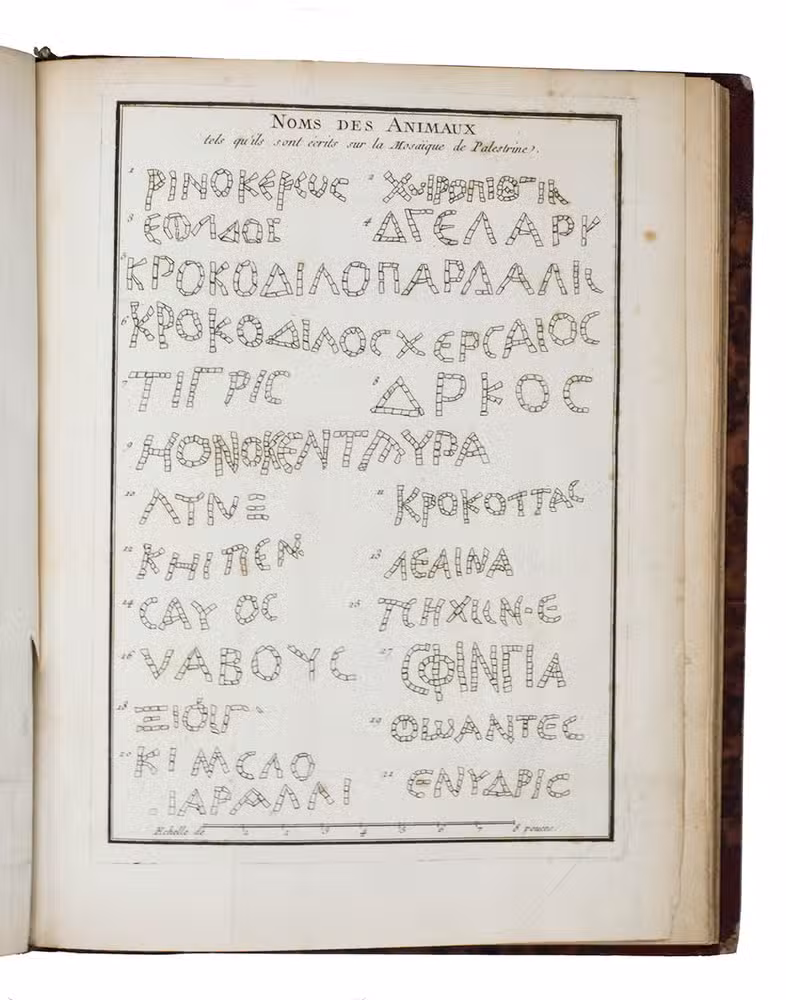 NOMS DES ANIMAUX
tels qu'ils sont écrits sur la Mosaïque de Palestrine.
1 ΡΙΝΟΚΕΡϵυϹ 2 ΧωΙΡΟΠΙΘΙΚ
3 ΕΦΑΛΟΣ 4 ΔΓΕΛΑΡΥ
5 ΚΡΟΚΟΔΙΛΟΠΑΡΔΑΛΙϹ
6 ΚΡΟΚΟΔΙΛΟϹ ΧΕΡϹΑΙΟϹ
7 ΤΙΓΡΙϹ 8 ΔΡΚΟϹ
9 ΗΟΝΟΚΕΝΤΑΥΡΑ
10 ΛΥΝΞ 11 ΚΡΟΚΟΤΤΑϹ
12 ΚΗΙΠΕΝ 13 ΛΕΑΙΝΑ
14 ϹΑΥΟϹ 15
16 ΝΑΒΟΥϹ 17 ϹΦΙΝΓΙΑ
18 ΞΙΟΙΓ 19 ΘωΑΝΤΕϹ
20 21 ΕΝΥΔΡΙϹ
Echelle de 1 2 3 4 5 6 7 8 pouces.